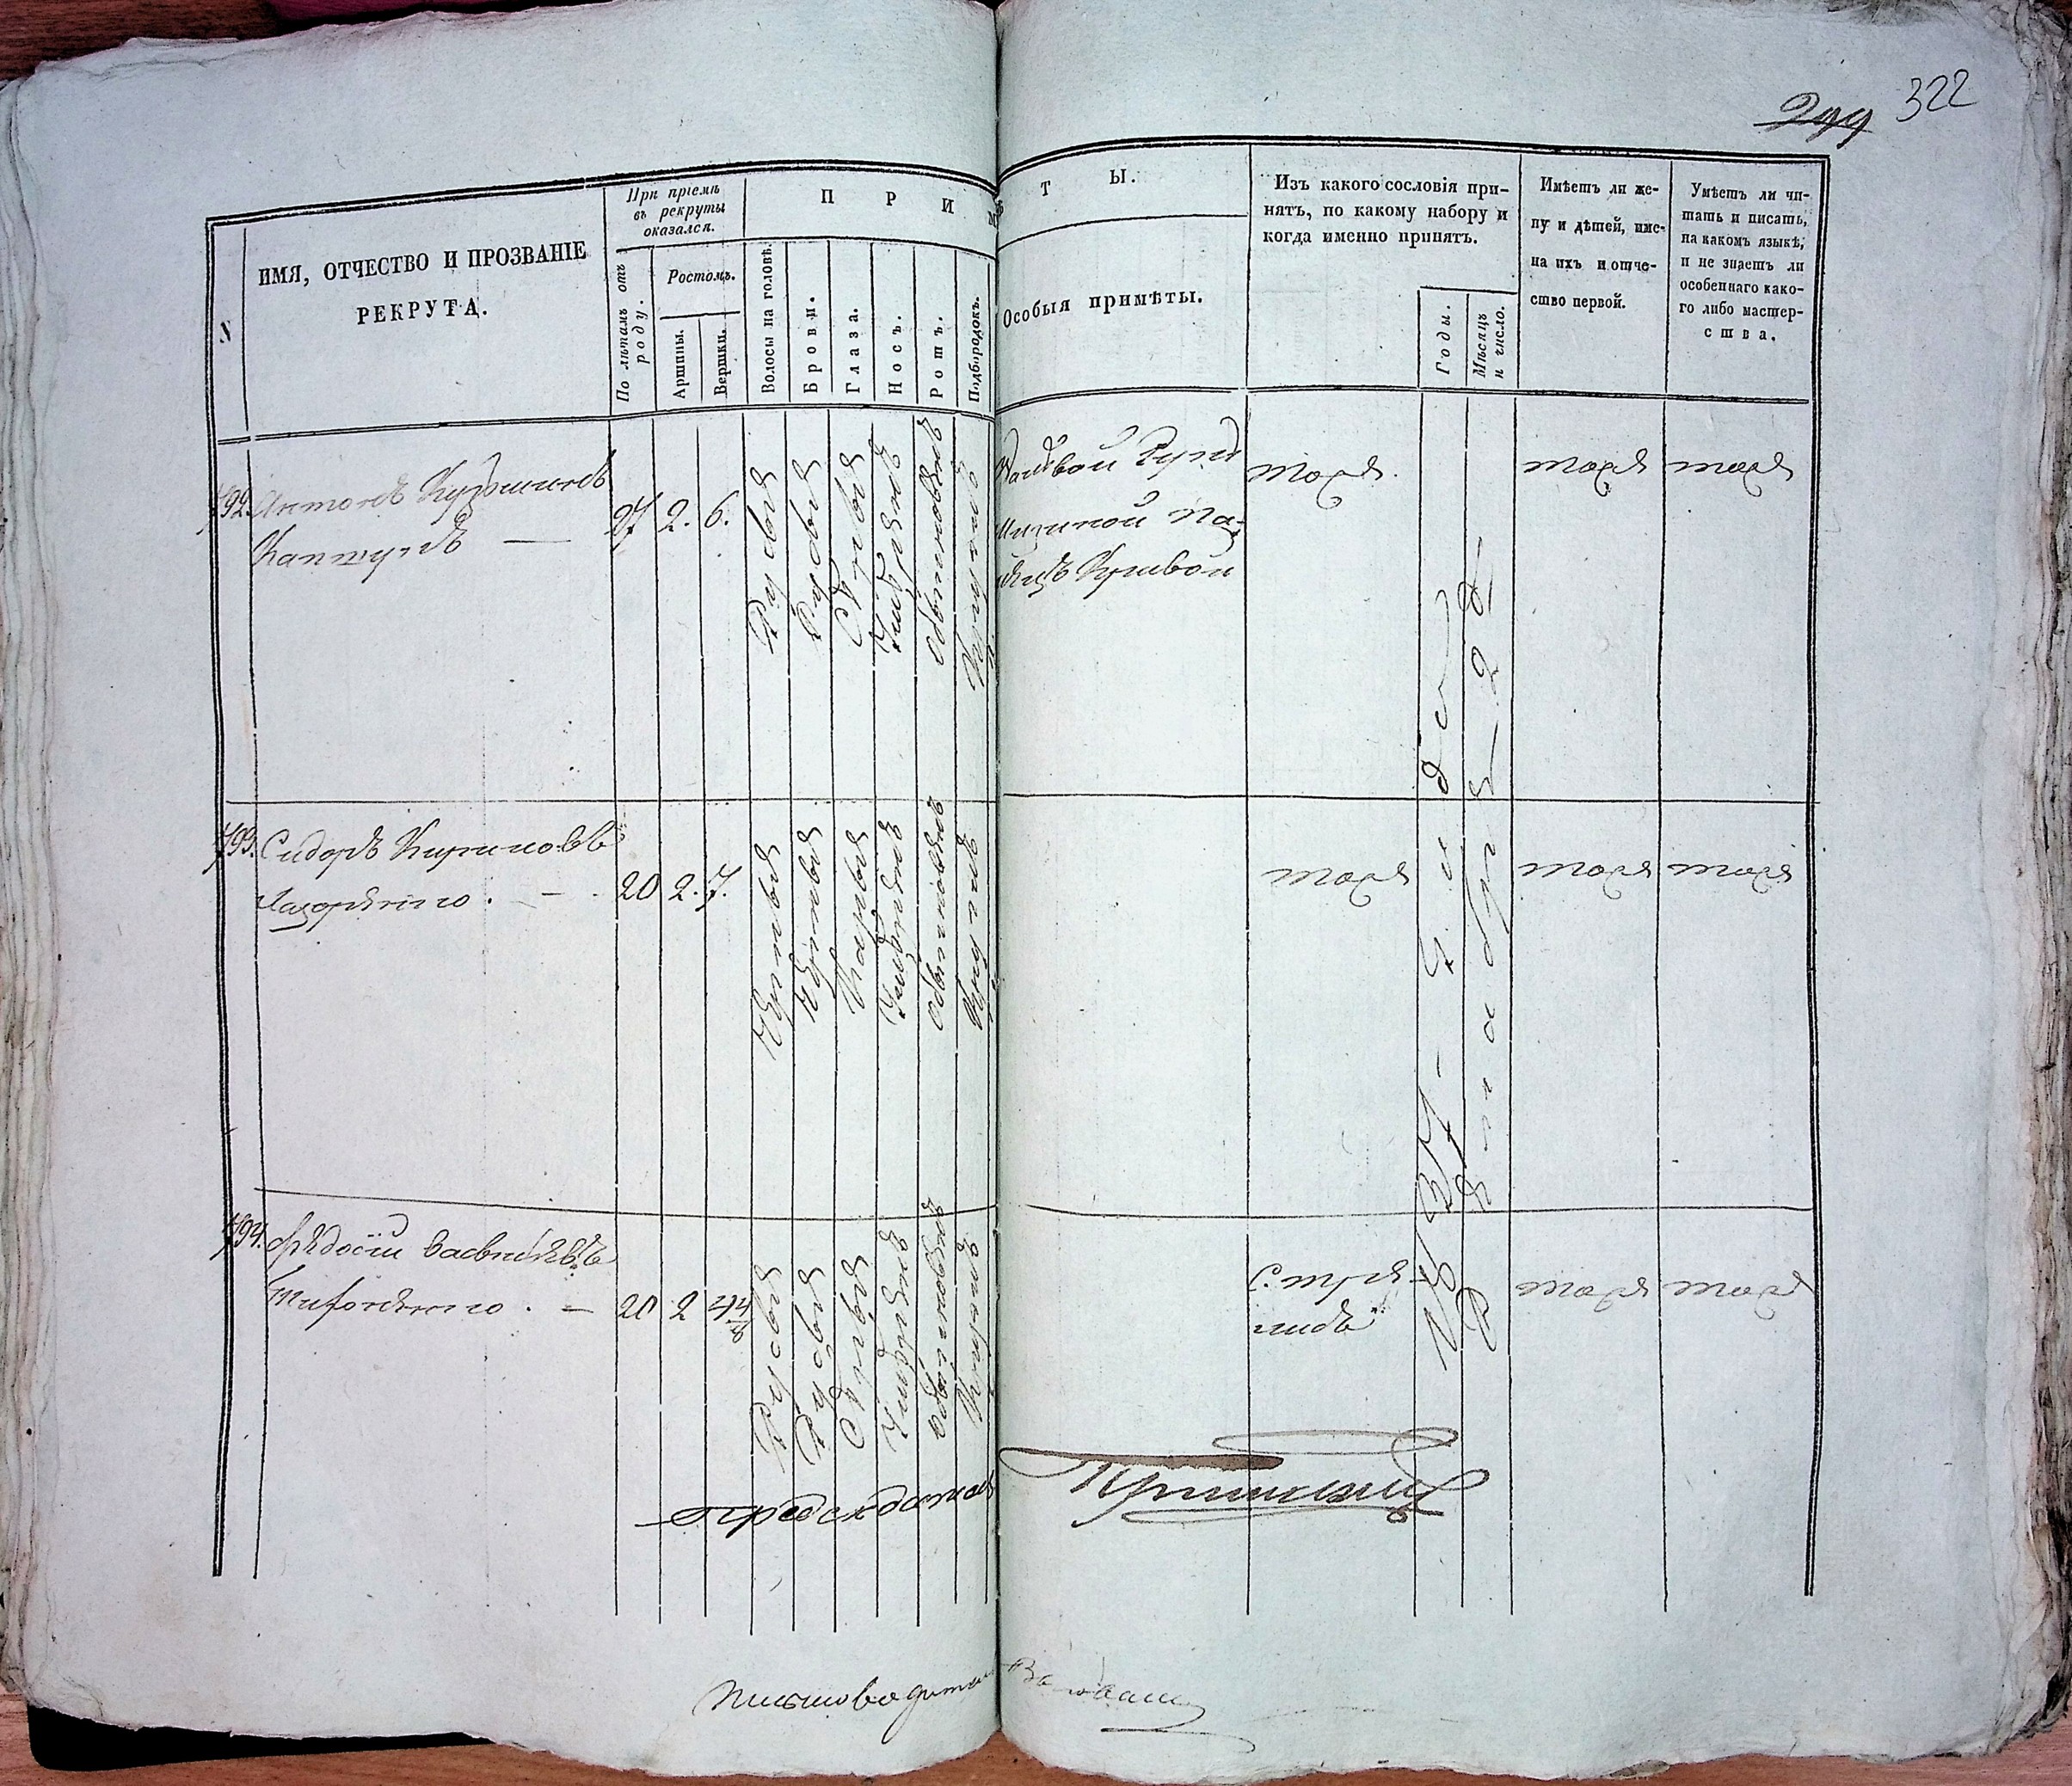 299 322
N
ИМЯ, ОТЧЕСТВО И ПРОЗВАНІЕ
РЕКРУТА.
При пріемѣ
въ рекруты
оказался.
По лѣтамъ отъ
роду.
Ростомъ.
Аршины.
Вершки.
П Р И М Ѣ Т Ы.
Волосы на головѣ.
Брови.
Глаза.
Носъ.
Ротъ.
Подбородокъ.
Особыя примѣты.
Изъ какого сословія при-
нятъ, по какому набору и
когда именно принятъ.
Годы.
Мѣсяцъ
и число.
Имѣетъ ли же-
ну и дѣтей, име-
на ихъ и отче-
ство первой.
Умѣетъ ли чи-
тать и писать,
на какомъ языкѣ,
и не знаетъ ли
особеннаго како-
го либо мастер-
ства.
792. Антонъ
27 2. 6. Русыя Русыя Сѣрыя Умѣренъ обыкновенъ Круглъ
Мизиной Па-
лецъ Кривой
тоже. тоже тоже
793. Сидоръ Кириловъ
20 2. 7. Черныя Черныя Карыя Умѣренъ обыкновенъ Круглъ
тоже тоже тоже
794. Ѳедосіи Васильевъ
Тихоненко. — 20 2 4 4/8 Русыя Русыя Сѣрыя Умѣренъ обыкновенъ Круглъ
тоже тоже
1831 — Года
Декабря 28
Предсѣдатель
Письмоводитель